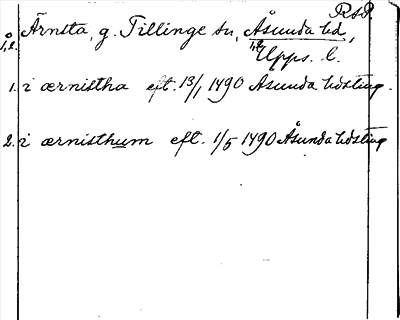 RSR
Ärnsta, g. Tillinge sn, Åsunda hd,
1,2. Upps. l.
1. i ærnistha eft. 13/1 1490 Asunda hdsting.
2. i ærnisthum eft. 1/5 1490 Åsunda hdsting